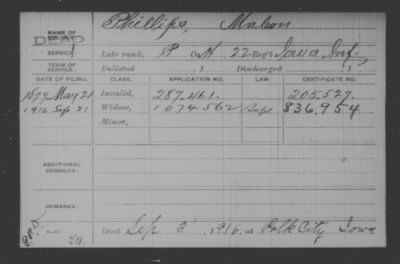 NAME OF Phillips, Mahon
DEAD
SERVICE: Late rank, P Co. H, 22 Reg't Iowa Inf.,
TERM OF SERVICE: Enlisted , 1 Discharged , 1
DATE OF FILING. CLASS. APPLICATION NO. LAW. CERTIFICATE NO.
1879 May 21 Invalid, 287.461. 205.527.
1916 Sep 21 Widow, 1074562 836.954
Minor,
ADDITIONAL SERVICES:
REMARKS:
Died Sep 3 1916, at Polk City Iowa